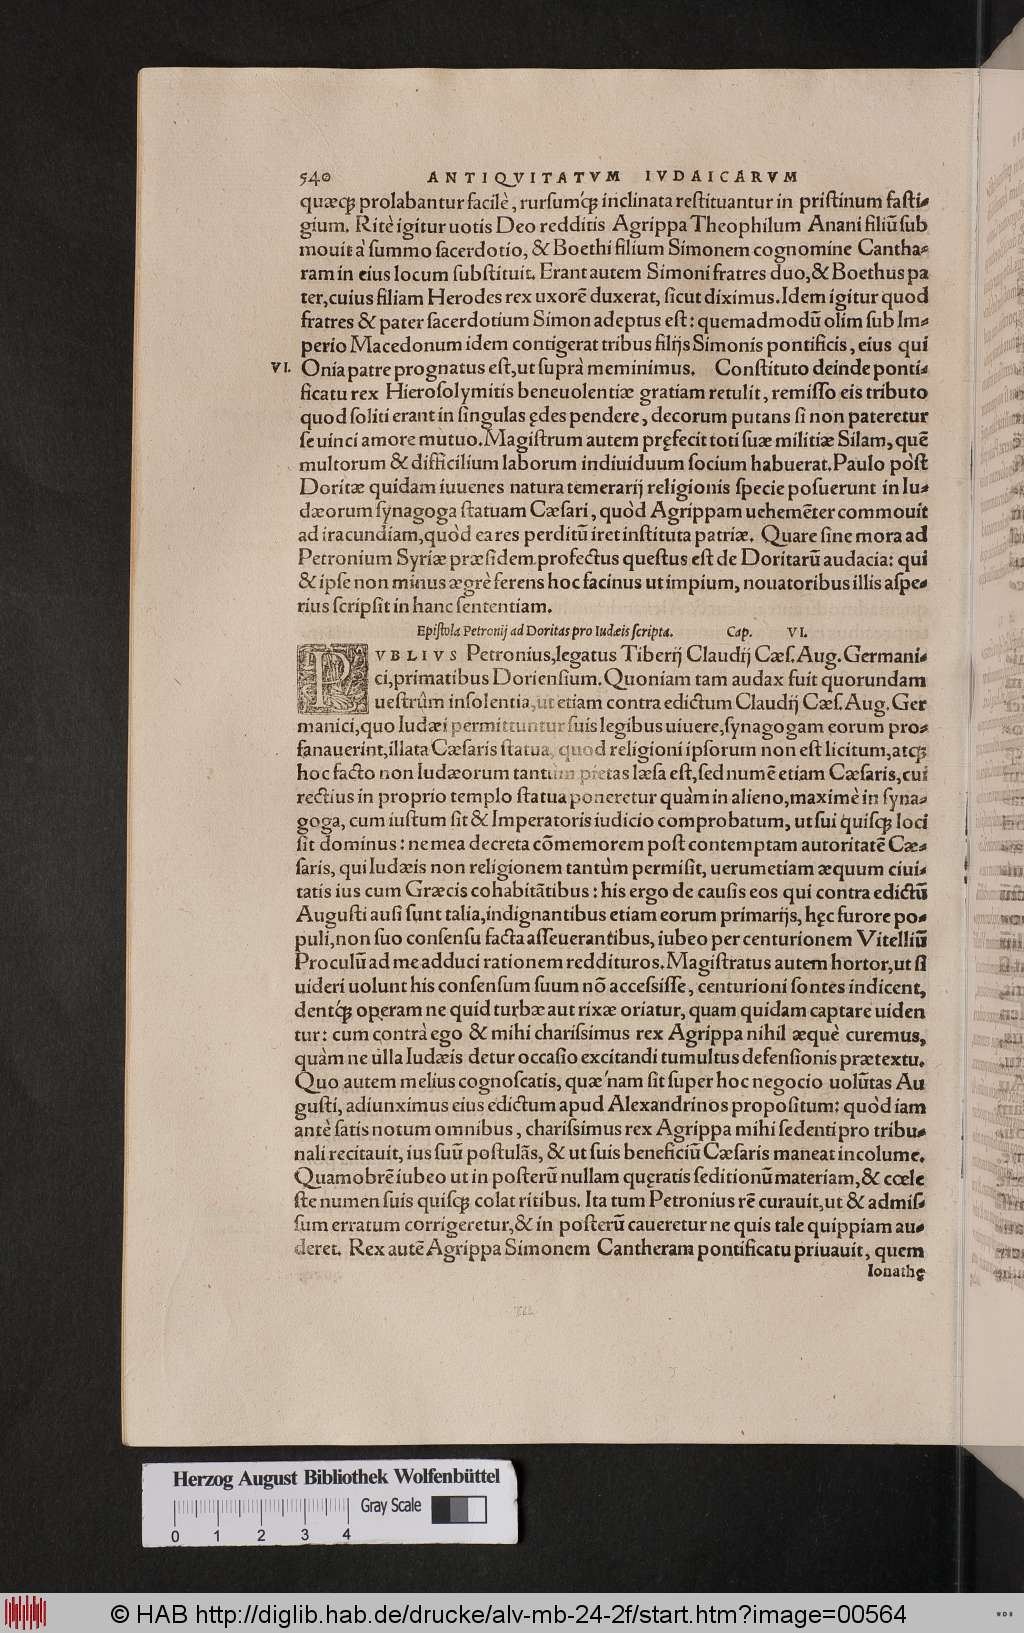 540 ANTIQVITATVM IVDAICARVM
quæcꝗ prolabantur facilè, rursumcꝗ́ inclinata restituantur in pristinum fasti-
gium. Ritè igitur uotis Deo redditis Agrippa Theophilum Anani filiū sub
mouit à summo sacerdotio, & Boethi filium Simonem cognomine Cantha-
ram in eius locum substituit. Erant autem Simoni fratres duo, & Boethus pa
ter, cuius filiam Herodes rex uxorē duxerat, sicut diximus. Idem igitur quod
fratres & pater sacerdotium Simon adeptus est: quemadmodū olim sub Im-
perio Macedonum idem contigerat tribus filijs Simonis pontificis, eius qui
VI. Onia patre prognatus est, ut suprà meminimus. Constituto deinde ponti-
ficatu rex Hierosolymitis beneuolentiæ gratiam retulit, remisso eis tributo
quod soliti erant in singulas ędes pendere, decorum putans si non pateretur
se uinci amore mutuo. Magistrum autem pręfecit toti suæ militiæ Silam, quē
multorum & difficilium laborum indiuiduum socium habuerat. Paulo pòst
Doritæ quidam iuuenes natura temerarij religionis specie posuerunt in Iu-
dæorum synagoga statuam Cæsari, quòd Agrippam uehemēter commouit
ad iracundiam, quòd ea res perditū iret instituta patriæ. Quare sine mora ad
Petronium Syriæ præsidem profectus questus est de Doritarū audacia: qui
& ipse non minus ægrè ferens hoc facinus ut impium, nouatoribus illis aspe-
rius scripsit in hanc sententiam.
Epistola Petronij ad Doritas pro Iudæis scripta. Cap. VI.
PVBLIVS Petronius, legatus Tiberij Claudij Cæs. Aug. Germani-
ci, primatibus Doriensium. Quoniam tam audax fuit quorundam
uestrûm insolentia, ut etiam contra edictum Claudij Cæs. Aug. Ger
manici, quo Iudæi permittuntur suis legibus uiuere, synagogam eorum pro-
fanauerint, illata Cæsaris statua, quod religioni ipsorum non est licitum, atcꝗ
hoc facto non Iudæorum tantum pietas læsa est, sed numē etiam Cæsaris, cui
rectius in proprio templo statua poneretur quàm in alieno, maximè in syna-
goga, cum iustum sit & Imperatoris iudicio comprobatum, ut sui quiscꝗ loci
sit dominus: ne mea decreta cōmemorem post contemptam autoritatē Cæ-
saris, qui Iudæis non religionem tantùm permisit, uerumetiam æquum ciui-
tatis ius cum Græcis cohabitātibus: his ergo de causis eos qui contra edictū
Augusti ausi sunt talia, indignantibus etiam eorum primarijs, hęc furore po-
puli, non suo consensu facta asseuerantibus, iubeo per centurionem Vitelliū
Proculū ad me adduci rationem reddituros. Magistratus autem hortor, ut si
uideri uolunt his consensum suum nō accessisse, centurioni sontes indicent,
dentcꝗ́ operam ne quid turbæ aut rixæ oriatur, quam quidam captare uiden
tur: cum contrà ego & mihi charissimus rex Agrippa nihil æquè curemus,
quàm ne ulla Iudæis detur occasio excitandi tumultus defensionis prætextu.
Quo autem melius cognoscatis, quæ'nam sit super hoc negocio uolūtas Au
gusti, adiunximus eius edictum apud Alexandrinos propositum: quòd iam
antè satis notum omnibus, charissimus rex Agrippa mihi sedenti pro tribu-
nali recitauit, ius suū postulās, & ut suis beneficiū Cæsaris maneat incolume.
Quamobrē iubeo ut in posterū nullam quęratis seditionū materiam, & cœle
ste numen suis quiscꝗ colat ritibus. Ita tum Petronius rē curauit, ut & admis-
sum erratum corrigeretur, & in posterū caueretur ne quis tale quippiam au-
deret. Rex autē Agrippa Simonem Cantheram pontificatu priuauit, quem
Ionathę
Herzog August Bibliothek Wolfenbüttel
Gray Scale
0 1 2 3 4
© HAB http://diglib.hab.de/drucke/alv-mb-24-2f/start.htm?image=00564